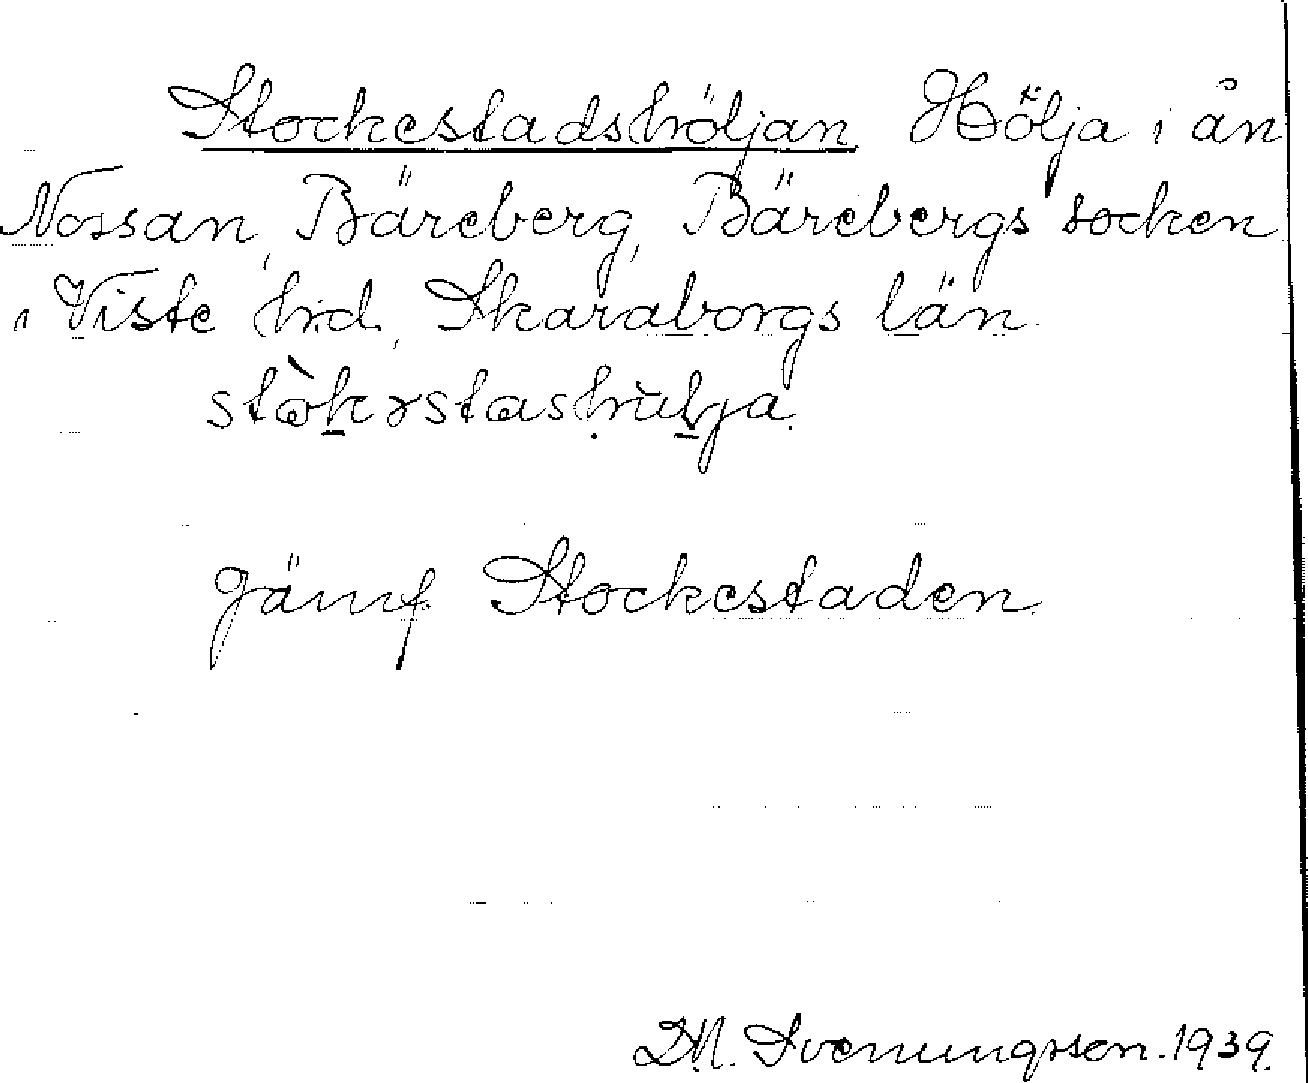 Stockestadshöljan Hölja i ån
Nossan, Bäreberg, Bärebergs socken
i Viste hrd, Skaraborgs län.
stòkəstashùlja.
Jämf. Stockestaden
D.N. Svenungsson. 1939.